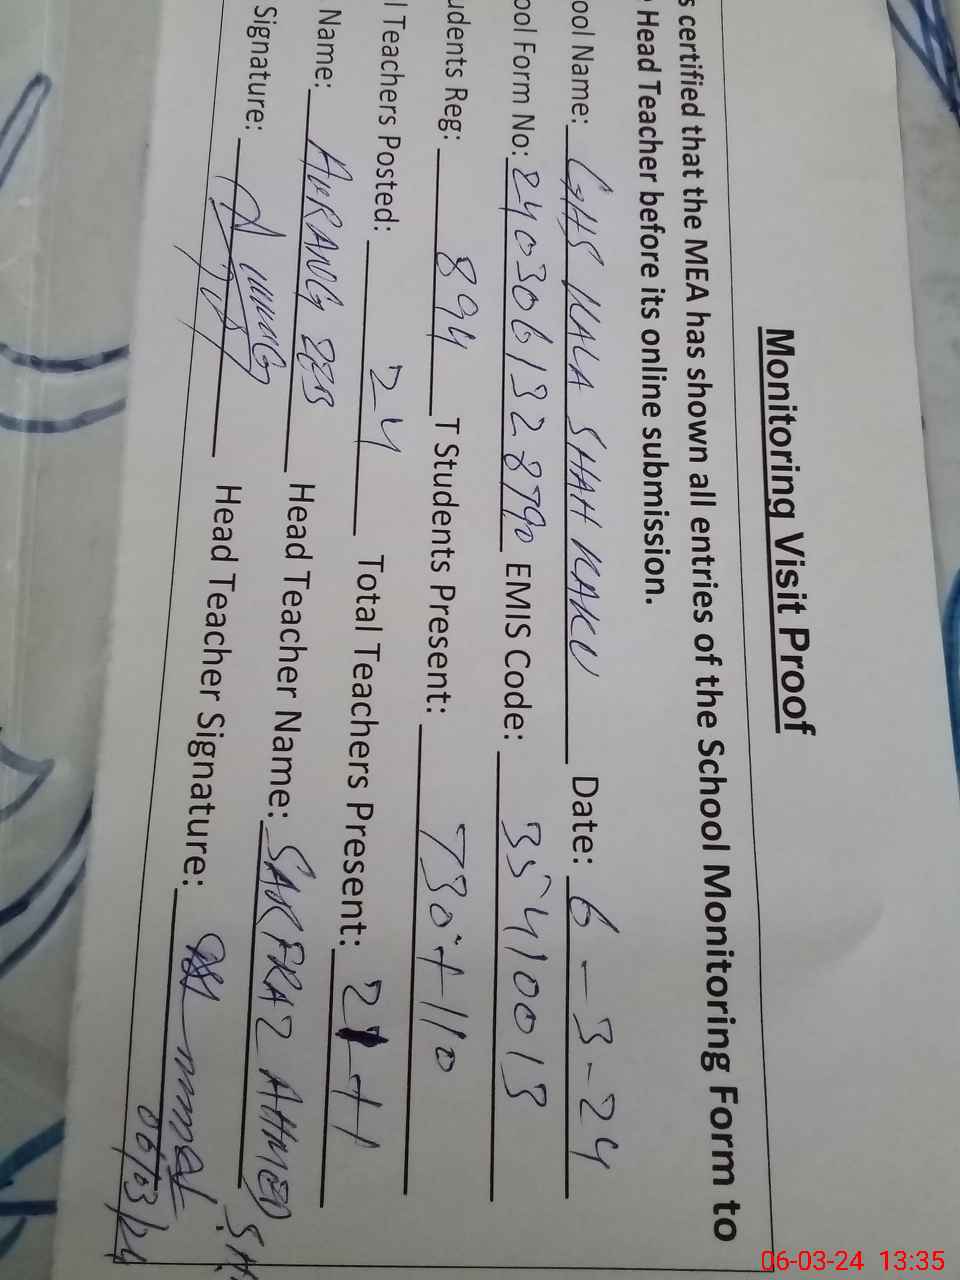 Monitoring Visit Proof
s certified that the MEA has shown all entries of the School Monitoring Form to
Head Teacher before its online submission.
ool Name: GHS KALA SHAH KAKU Date: 6-3-24
ool Form No: 2403061328790 EMIS Code: 35410013
udents Reg: 894 T Students Present: 730+110
l Teachers Posted: 24 Total Teachers Present: 21+1
Name: AURANG ZEB Head Teacher Name: SARFRAZ AHMED
Signature: Head Teacher Signature:
06/03/24
06-03-24 13:35